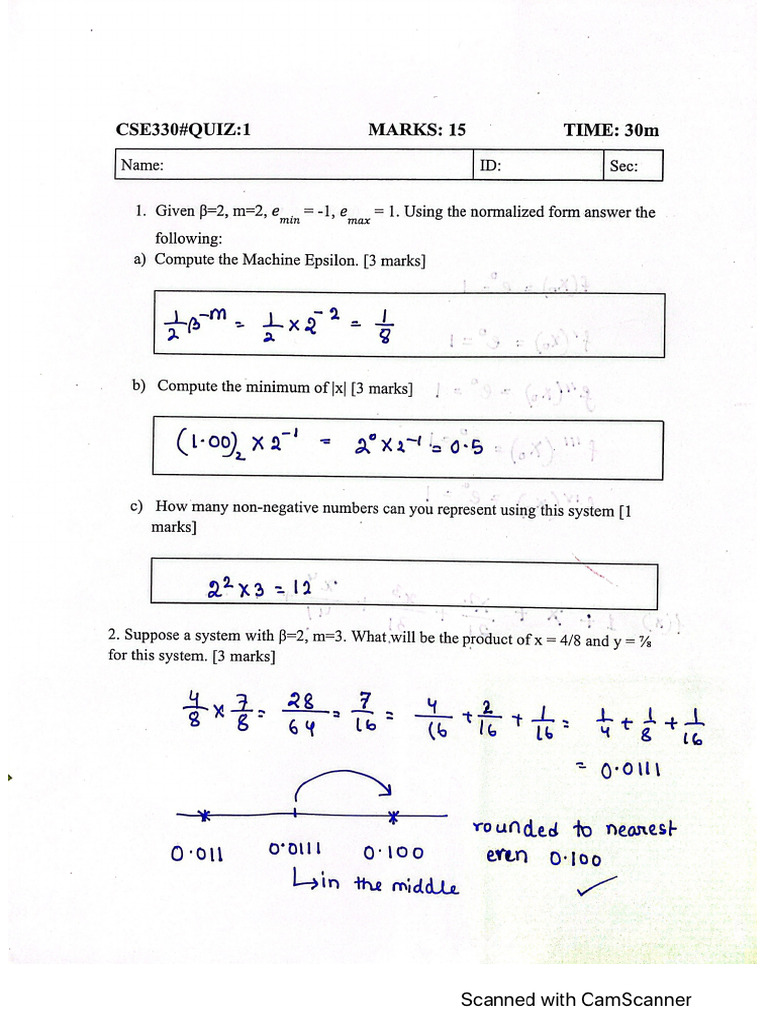 CSE330#QUIZ:1 MARKS: 15 TIME: 30m
Name: ID: Sec:
1. Given β=2, m=2, e_min = -1, e_max = 1. Using the normalized form answer the
following:
a) Compute the Machine Epsilon. [3 marks]
1/2 β^-m = 1/2 × 2^-2 = 1/8
b) Compute the minimum of |x| [3 marks]
(1.00)_2 × 2^-1 = 2^0 × 2^-1 = 0.5
c) How many non-negative numbers can you represent using this system [1
marks]
2^2 × 3 = 12
2. Suppose a system with β=2, m=3. What will be the product of x = 4/8 and y = ⅞
for this system. [3 marks]
4/8 × 7/8 = 28/64 = 7/16 = 4/16 + 2/16 + 1/16 = 1/4 + 1/8 + 1/16
= 0.0111
0.011 0.0111 0.100
↳ in the middle
rounded to nearest
even 0.100
Scanned with CamScanner